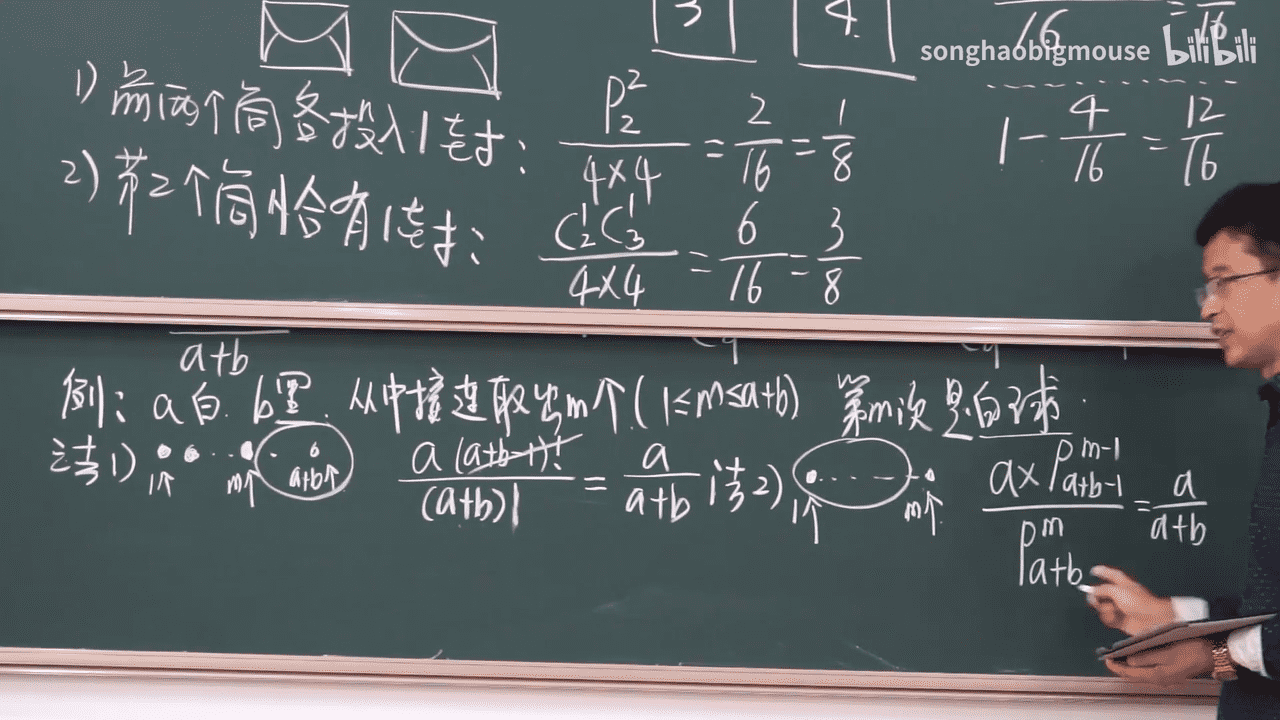 songhaobigmouse bilibili
3 4
16 = 16
1) 前两个筒各投入1封: P_2^2 / 4×4 = 2/16 = 1/8
1 - 4/16 = 12/16
2) 第2个筒恰有1封: C_2^1 C_3^1 / 4×4 = 6/16 = 3/8
a+b
例: a白. b黑. 从中接连取出m个(1≤m≤a+b) 第m次是白球.
法1) 1个 m个 a+b个 a(a+b-1)! / (a+b)! = a/a+b 法2) 1个 m个 a×P_{a+b-1}^{m-1} / P_{a+b}^m = a/a+b